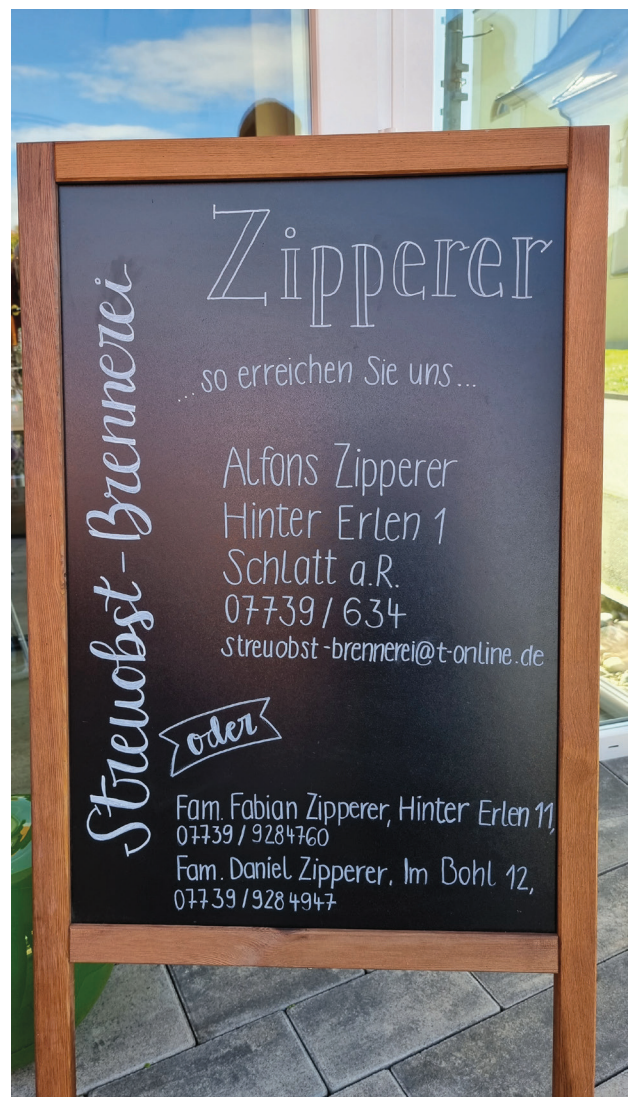 Streuobst-Brennerei
Zipperer
...so erreichen Sie uns...
Alfons Zipperer
Hinter Erlen 1
Schlatt a.R.
07739/634
streuobst-brennerei@t-online.de
oder
Fam. Fabian Zipperer, Hinter Erlen 11,
07739/9284760
Fam. Daniel Zipperer, Im Bohl 12,
07739/9284947